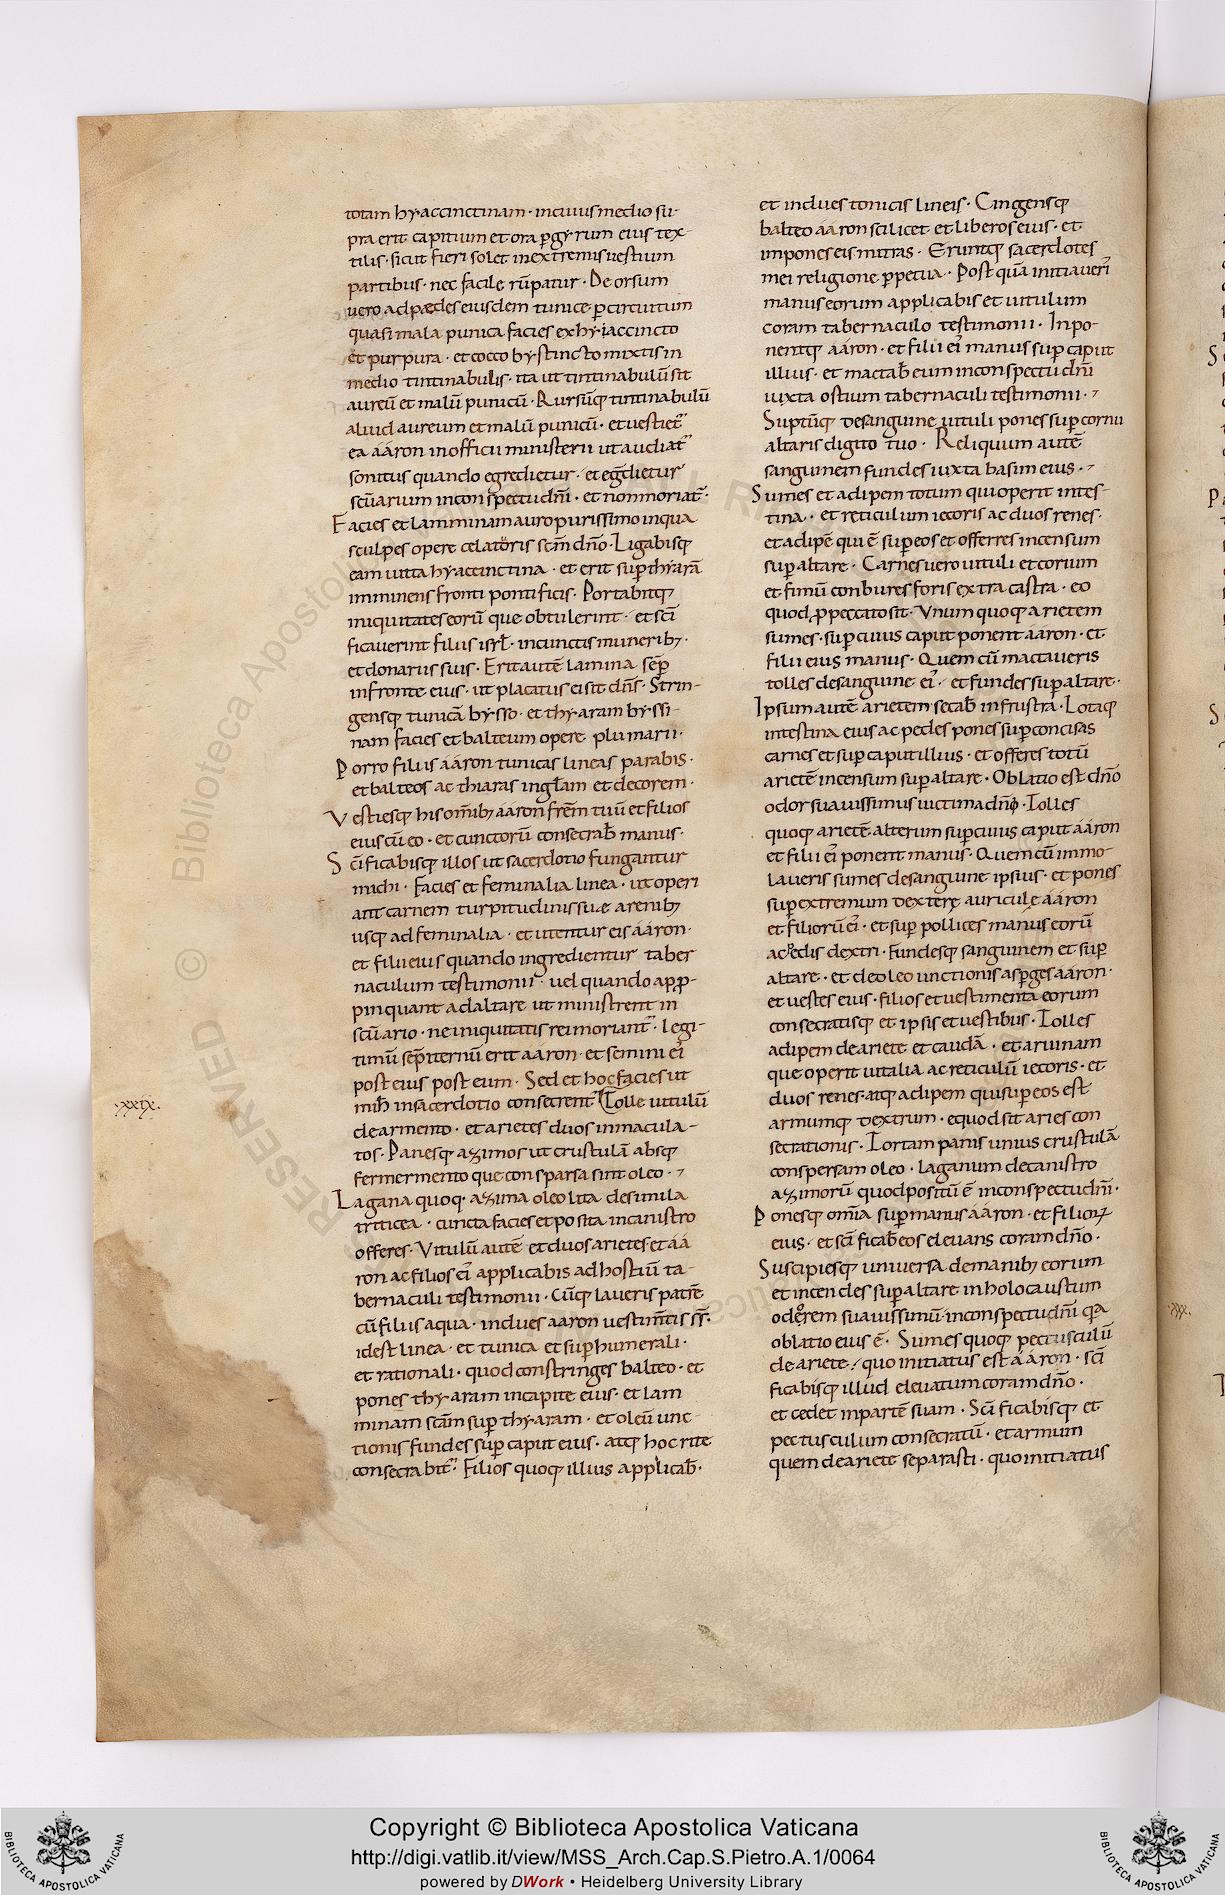 totam hyaccinctinam · incuius medio su-
pra erit capitium et ora ꝑgyrum eius tex-
tilis · sicut fieri solet inextremis uestium
partibus · nec facile rūpatur · Deorsum
uero adpaedes eiusdem tunice ꝑ circuitum
quasi mala punica facies exhyiaccincto
et purpura · et cocco bystincto mixtis in
medio tintinabulis · ita ut tintinabulū sit
aureū et malū punicū · Rursūq; tintinabulū
aliud aureum et malū punicū · et uestiet᷑
ea ááron inofficii ministerii ut audiat᷑
sonitus quando egredietur · et eg̅dietur
scūarium inconspectu dn̄i · et nonmoriat᷑ ·
Facies et lamminam auro purissimo inqua
sculpes opere celatoris scm̄ dn̄o · Ligabisq;
eam uitta hyaccinctina · et erit suꝑ thyarā
imminens fronti pontificis · Portabitq;
iniquitates eorū que obtulerint · et sc̄i
ficauerint filius isrl̄ · incunctis munerib;
et donariis suis · Erit autē lamina sēꝑ
infronte eius · ut placatus eis sit dn̄s · Strin-
gensq; tunicā bysso · et thyaram byssi-
nam facies et balteum opere plumarii ·
Porro filius ááron tunicas lineas parabis ·
et balteos ac thiaras inglam̄ et decorem ·
Vestiesq; his om̄ib; ááron frēm tuū et filios
eius cū eo · et cunctorū consecrab̄ manus ·
Sc̄ificabisq; illos ut sacerdotio fungantur
michi · Facies et feminalia linea · ut operi
ant carnem turpitudinis suae arenib;
usq; ad feminalia · et utentur eis ááron ·
et filii eius quando ingredientur taber
naculum testimonii · uel quando apꝓ-
pinquant adaltare ut ministrent in
scūario · ne iniquitatis rei moriant᷑ · legi-
timū sēꝑiternū erit aaron · et semini ei᷒
post eius post eum · Sed et hoc facies ut
mih̄ insacerdotio consecrent᷑ Tolle uitulū
de armento · et arietes duos inmacula-
tos · Panesq; azimos ut crustulā absq;
fermermento que consparsa sint oleo ·
Lagana quoq; azima oleo lita de simila
triticea · cuncta facies et posita incanistro
offeres · Vitulū autē et duos arietes · et áá
ron ac filios ei᷒ applicabis ad hostiū ta-
bernaculi testimonii · Cūq; laueris patrē
cū filiis aqua · indues aaron uestim̄tis ss̄ ·
idest linea · et tunica et suꝑhumerali ·
et rationali · quod constringes balteo · et
pones thyaram incapite eius · et lam
minam scām suꝑ thyaram · et oleū unc-
tionis fundes suꝑ caput eius · atq; hoc rite
consecrabit᷑ · Filios quoq; illius applicab̄ ·
et indues tonicis lineis · Cingensq;
balteo ááron scilicet et liberos eius · et
impones eis mitras · Eruntq; sacerdotes
mei religione ꝑpetua · Post quā initiaueri᷒
manus eorum applicabis et uitulum
coram tabernaculo testimonii · Inpo-
nentq; ááron · et filii ei᷒ manus suꝑ caput
illius · et mactab̄ eum inconspectu dn̄i
iuxta ostium tabernaculi testimonii ·
Suptūq; desanguine uituli pones suꝑ cornu
altaris digito tuo · Reliquum autē
sanguinem fundes iuxta basim eius ·
Sumes et adipem totum qui operit intes-
tina · et reticulum iecoris ac duos renes ·
et adipē qui ē suꝑ eos et offerres incensum
suꝑ altare · Carnes uero uituli et corium
et fimū conbures foris extra castra · eo
quod ꝓ peccato sit · Vnum quoq; arietem
sumes · suꝑ cuius caput ponent ááron · et
filii eius manus · Quem cū mactaueris
tolles desanguine ei᷒ · et fundes suꝑ altare ·
Ipsum autē arietem secab̄ infrustra · Lotaq;
intestina eius ac pedes pones suꝑ concisas
carnes et suꝑ caput illius · et offeres totū
arietē incensum suꝑ altare · Oblatio est dn̄o
odor suauissimus uictima dn̄o · Tolles
quoq; arietē alterum suꝑ cuius caput ááron
et filii ei᷒ ponent manus · Quem cū immo-
laueris sumes desanguine ipsius · et pones
suꝑ extremum dextere auricule ááron
et filiorū ei᷒ · et suꝑ pollices manus eorū
ac pedis dextri · Fundesq; sanguinem et suꝑ
altare · et de oleo unctionis asꝑges aaron ·
et uestes eius · filios et uestimenta eorum
consecratisq; et ipsis et uestibus · Tolles
adipem de ariete et caudā · et aruinam
que operit uitalia ac reticulū iecoris · et
duos renes · atq; adipem qui suꝑ eos est
armumq; dextrum · eo quod sit aries con
secrationis · Tortam panis unius crustulā
conspersam oleo · laganum de canistro
azimorū quod positū ē inconspectu dn̄i ·
Ponesq; om̄ia suꝑ manus ááron · et filioꝝ
eius · et sc̄i ficab̄ eos eleuans coram dn̄o ·
Suscipiesq; uniuersa de manib; eorum
et incendes suꝑ altare inholocaustum
odorem suauissimū · inconspectu dn̄i q̄a
oblatio eius ē · Sumes quoq; pectusculū
de ariete · quo initiatus est ááron · sc̄i
ficabisq; illud eleuatum coram dn̄o ·
et cedet inpartē suam · Sc̄i ficabisq; et
pectusculum consecratū · et armum
quem de ariete separasti · quo initiatus
xxix.
xxx.
Copyright © Biblioteca Apostolica Vaticana
http://digi.vatlib.it/view/MSS_Arch.Cap.S.Pietro.A.1/0064
powered by DWork • Heidelberg University Library